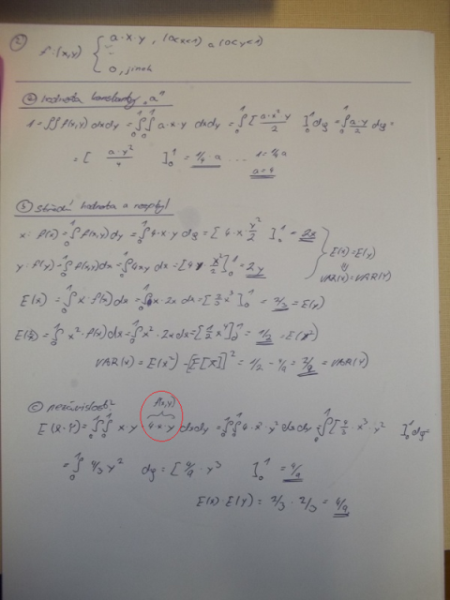 2) f(x,y) { a·x·y , (0<x<1) a (0<y<1)
0, jinak
a) hodnota konstanty "a"
1 = ∫∫ f(x,y) dxdy = ∫₀¹∫₀¹ a·x·y dxdy = ∫₀¹ [a·x²y/2]₀¹ dy = ∫₀¹ a·y/2 dy =
= [a·y²/4]₀¹ = 1/4 a ... 1 = 1/4 a
a=4
Střední hodnota a rozptyl
x: f(x) = ∫₀¹ f(x,y) dy = ∫₀¹ 4·x·y dy = [4·x y²/2]₀¹ = 2x
y: f(y) = ∫₀¹ f(x,y) dx = ∫₀¹ 4xy dx = [4y x²/2]₀¹ = 2y
E(x) = E(y)
VAR(x) = VAR(Y)
E(x) = ∫₀¹ x·f(x) dx = ∫₀¹ x·2x dx = [2/3 x³]₀¹ = 2/3 = E(y)
E(x²) = ∫₀¹ x²·f(x) dx = ∫₀¹ x²·2x dx = [1/2 x⁴]₀¹ = 1/2 = E(y²)
VAR(x) = E(x²) - [E(x)]² = 1/2 - 4/9 = = VAR(Y)
f(x,y)
c) nezávislost?
E(X·Y) = ∫₀¹∫₀¹ x·y·4·x·y dxdy = ∫₀¹∫₀¹ 4·x²·y² dxdy = ∫₀¹ [4/3·x³·y²]₀¹ dy =
= ∫₀¹ 4/3 y² dy = [4/9·y³]₀¹ = 4/9
E(x)·E(y) = 2/3·2/3 = 4/9